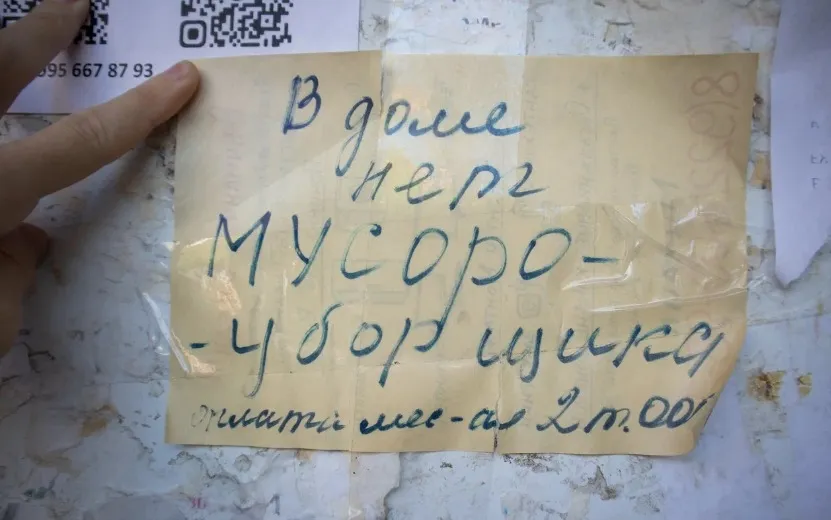 995 667 87 93
В доме
нет
МУСОРО-
-уборщика
оплата мес-ая 2 т.00